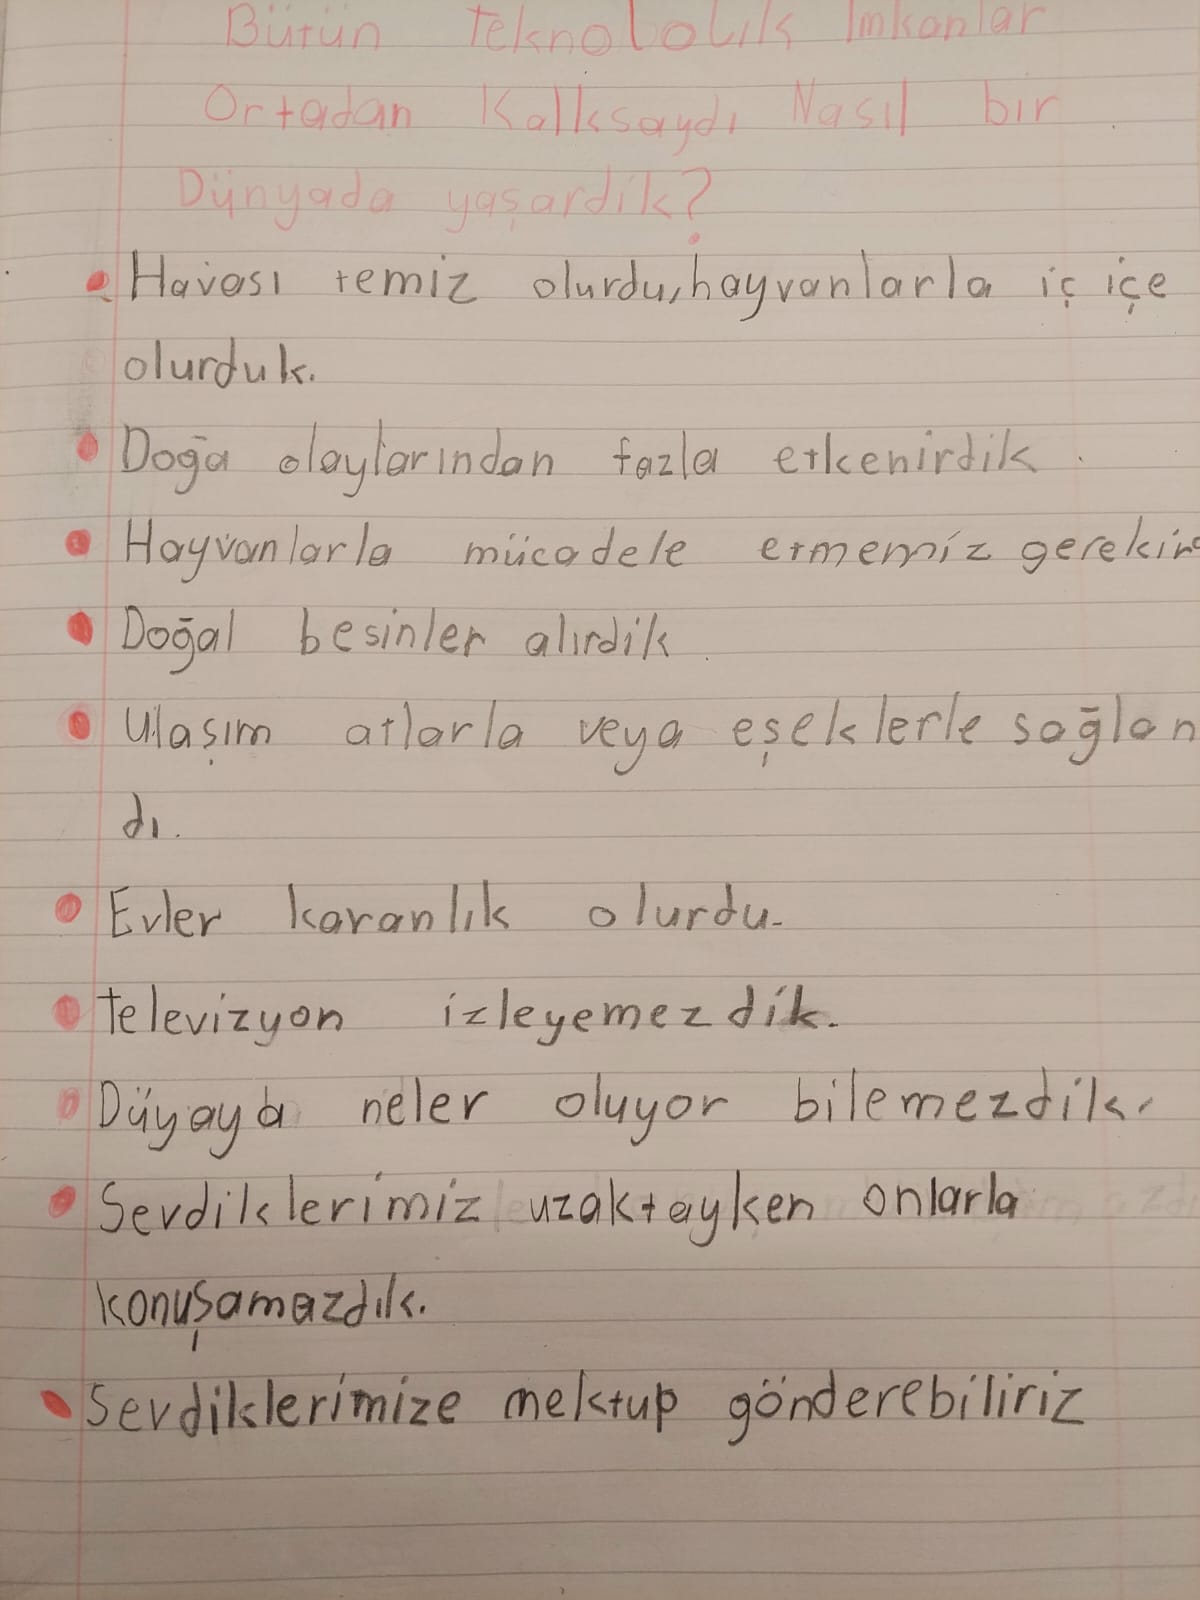 Bütün Teknobolık Imkanlar
Ortadan Kalksaydı Nasıl bır
Dünyada yaşardik?
Havası temiz olurdu, hayvanlarla iç içe
olurduk.
Doğa olaylarından fazla etkenirdik.
Hayvanlarla mücadele etmemiz
Doğal besinler alırdik.
Ulaşım atlarla veya eşeklerle sağlan
dı.
Evler karanlık olurdu.
Televizyon izleyemezdik.
Düyaya neler oluyor bilemezdik.
Sevdiklerimiz uzaktayken onlarla
konuşamazdık.
Sevdiklerimize mektup gönderebiliriz